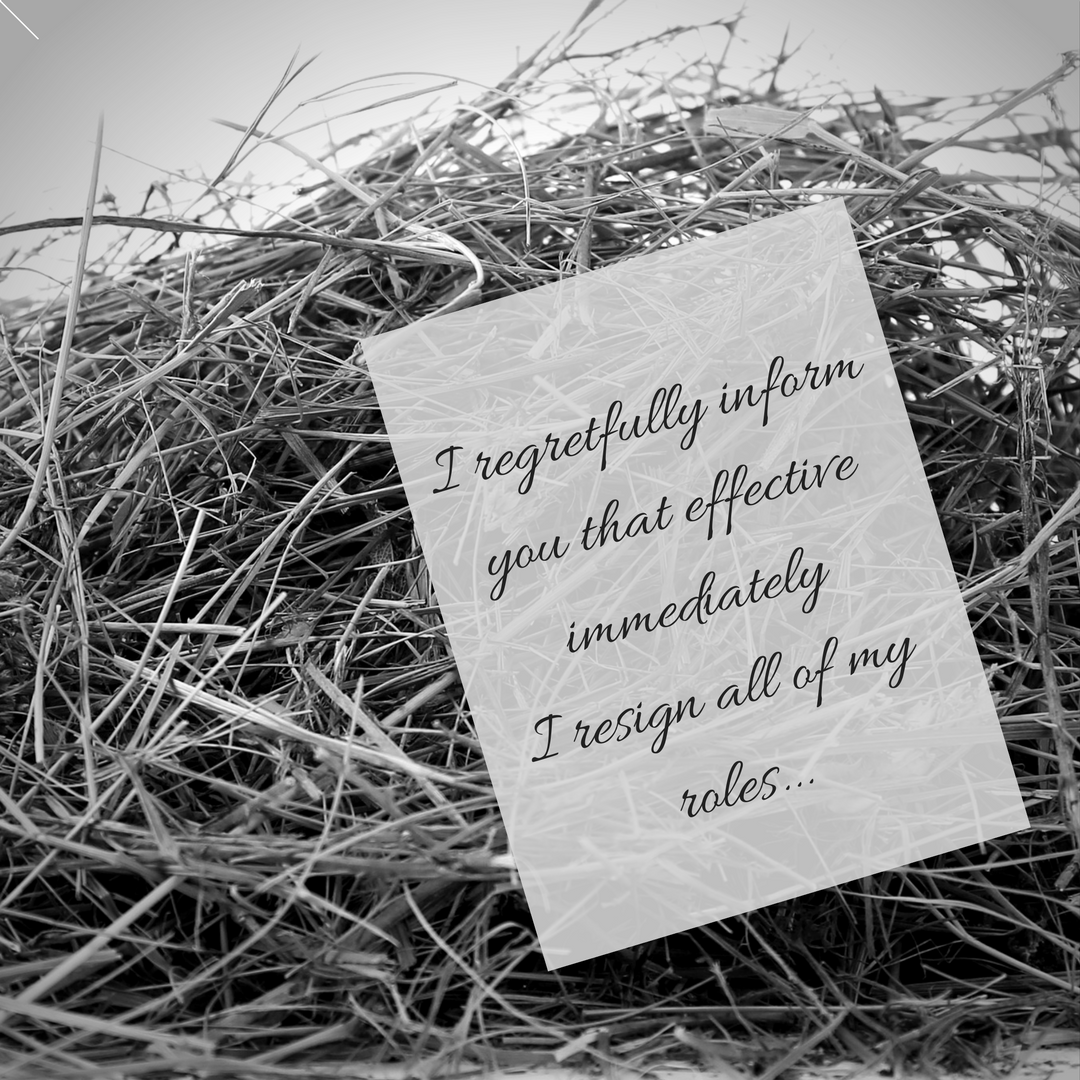 I regretfully inform
you that effective
immediately
I resign all of my
roles...